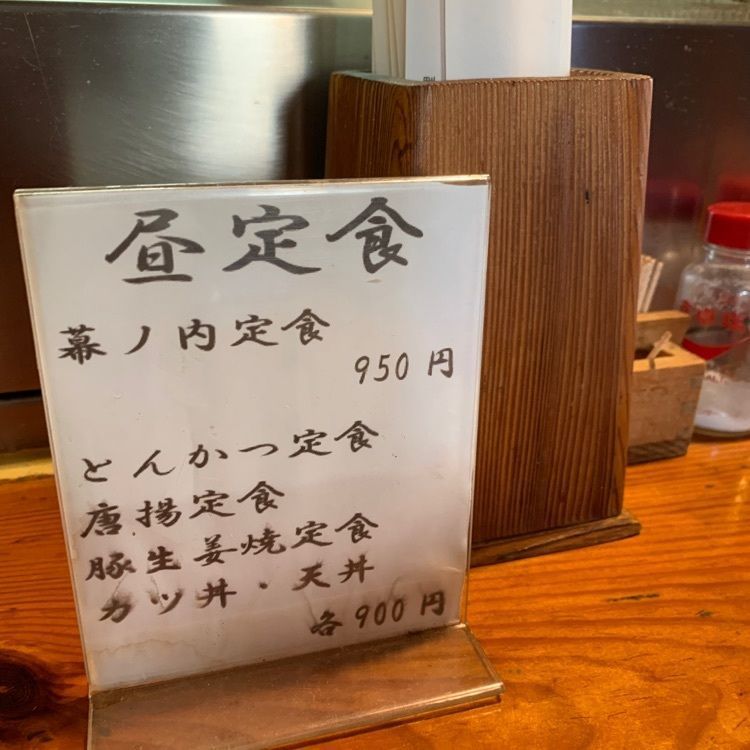 昼定食
幕ノ内定食
950円
とんかつ定食
唐揚定食
豚生姜焼定食
カツ丼・天丼
各900円